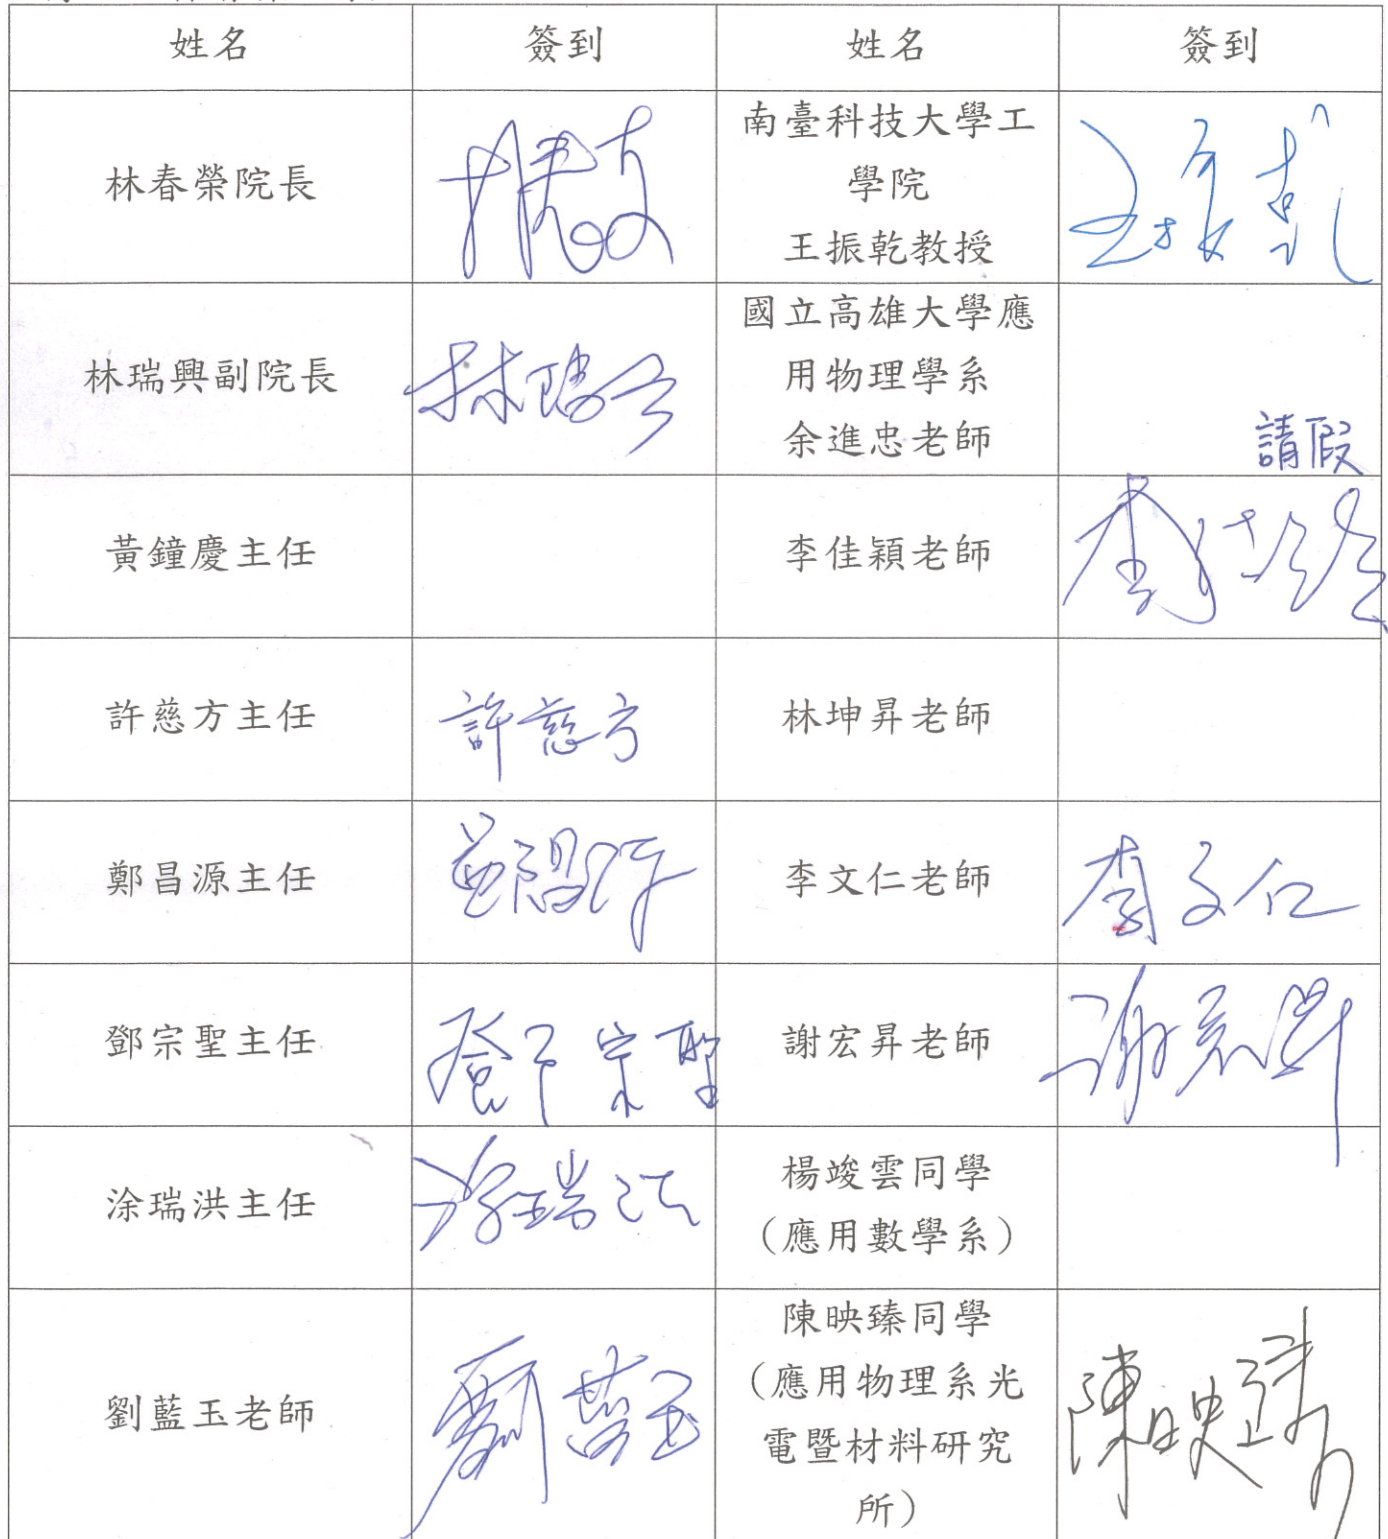 姓名 簽到 姓名 簽到
林春榮院長
南臺科技大學工
學院
王振乾教授
王振乾
林瑞興副院長
林瑞興
國立高雄大學應
用物理學系
余進忠老師
請假
黃鐘慶主任
李佳穎老師
李佳穎
許慈方主任
許慈方
林坤昇老師
鄭昌源主任
鄭昌源
李文仁老師
李文仁
鄧宗聖主任
鄧宗聖
謝宏昇老師
謝宏昇
涂瑞洪主任
涂瑞洪
楊竣雲同學
（應用數學系）
劉藍玉老師
劉藍玉
陳映臻同學
（應用物理系光
電暨材料研究
所）
陳映臻